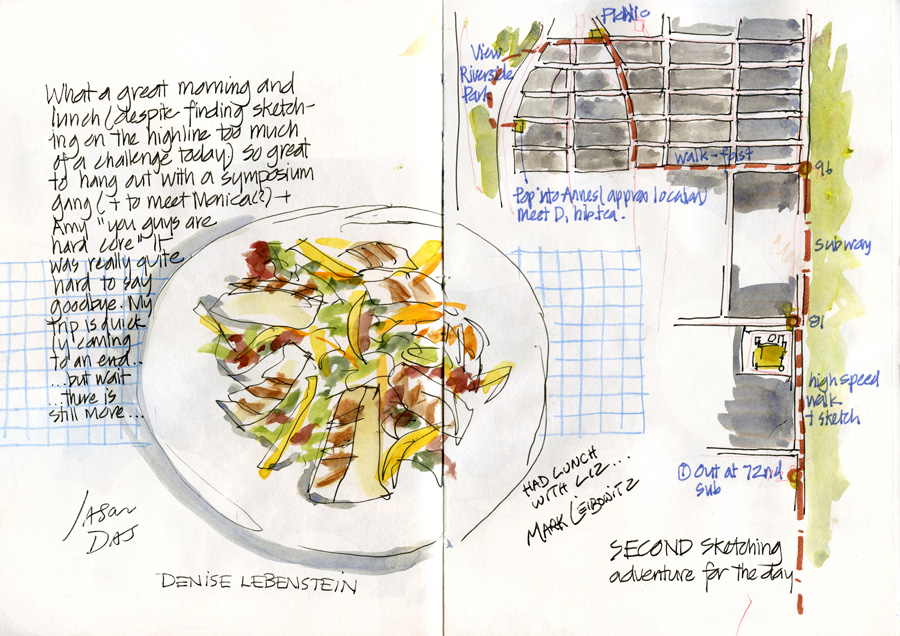 What a great morning and
lunch (despite finding sketch-
ing on the highline too much
of a challenge today) so great
to hang out with a symposium
gang (+ to meet Monica!?) +
Amy "you guys are
hard core" It
was really quite
hard to say
goodbye. My
trip is quick
ly coming
to an end..
...but wait
...there is
still more...
DENISE LEBENSTEIN
HAD LUNCH
WITH LIZ....
MARK LEIBOWITZ
Picnic
View
Riverside
Park
walk-fast
96
Pop into Annes (approx location)
meet D,
subway
81
high speed
walk
+ sketch
① Out at 72nd
sub
SECOND sketching
adventure for the day